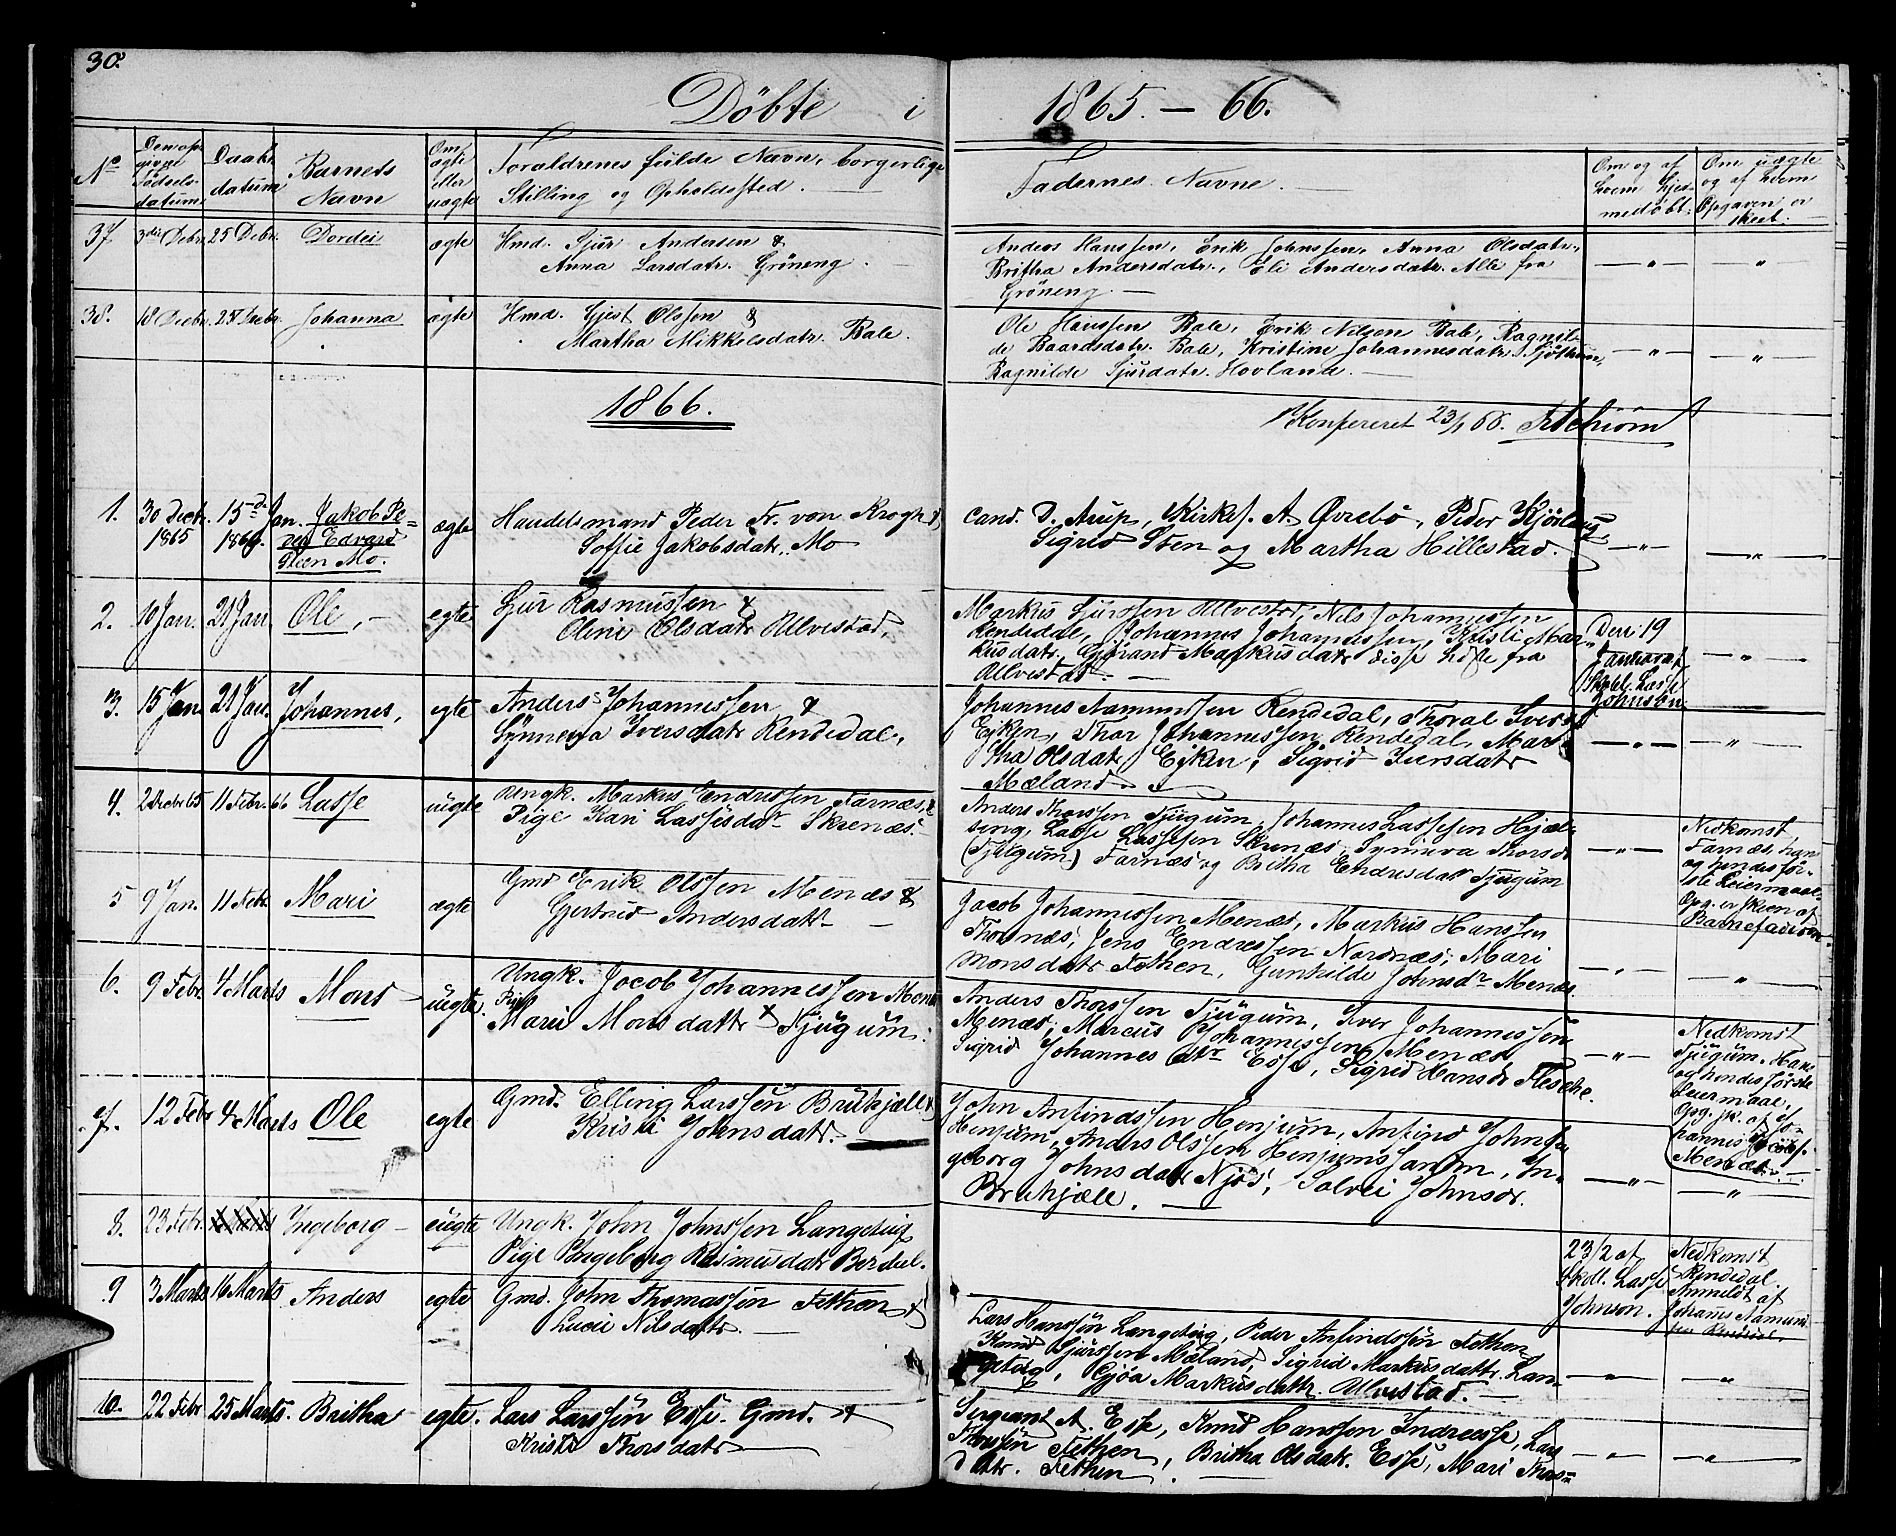 30.
Döbte i 1865. — 66.
No
Den opgivne Födselsdatum
Daabsdatum
Barnets Navn
Om ægte eller uægte
Foraldrenes fulde Navn, borgerlige
Stilling og Opholdssted.
Faddernes Navne.
Om og af hvem hjemmedöbt.
Om uægte og af hvem Opgaven er skeet.
37 3die Debr. 25 Debr. Dordei ægte Hmd. Sjur Andersen &
Anna Larsdatr. Gröneng.
Anders Hanssen, Erik Johnssen, Anna Olsdatr.,
Britha Andersdatr., Eli Andersdatr. Alle fra
Gröneng. — — " — "
38. 18 Decbr. 25 Decbr. Johanna ægte Hmd. Gjest Olssen &
Martha Mikkelsdatr. Bale.
Ole Hanssen Bale, Erik Nilsen Bale, Ragnil-
de Baardsdatr. Bale, Kristine Johannesdatr.
Ragnilde Sjursdatr. Hovland. — — " — "
1866.
Konfereret 23/1 66.
1. 30 Decbr. 1865 15de Jan. 1866. Jakob Pe-
der Edvard
Steen Mo. ægte Handelsmand Peder Fr. von Krogh &
Soffie Jakobsdatr. Mo
cand. D. Arup, Kirkes. A. Øvrebö, Peder Kjörlaug,
Sigrid Steen og Martha Hillestad. — " — — " —
2. 10 Jan. 21 Jan Ole, — egte Sjur Rasmussen &
Oline Olsdatr Ullvestad,
Markus Sjurssen Ullvestad, Nils Johannessen
Rendedal, Johannes Johannessen, Kristi Mar-
kusdatr, Gjertrud Markusdatr disse sidste fra
Ullvestad. —
Den 19
Januar af
Skolel. Lasse
Johnson — " —
3. 15 Jan 21 Jan. Johannes, egte Anders Johannessen &
Synneva Iversdatr Rendedal,
Johannes Aamundssen Rendedal, Thoral Ivers
Eyken, Thor Johannessen Rendedal, Mar-
tha Olsdatr Eyken, Sigrid Iversdatr
Mæland. — " — — " —
4. 2 Decbr 65 11 Febr. 66 Lasse uægte Ungk. Markus Endressen Farnæs, &
Pige Kari Lassesdatr Skrenæs.
Anders Thorssen Tjugum, Johannes Lassesen Hjæl-
Lasse Lassesen Skrenæs, Synneva Thorsdr
(Tjugum) Farnæs og Britha Endresdatr Tjugum — " —
Nedkomst
Farnæs, hans
og hendes för-
ste Leiermaal.
Opg. er skeen af
Barnefaderen.
5 9 Jan. 11 Febr. Mari ægte Gmd Erik Olssen Menæs &
Gjertrud Andersdatr —
Jacob Johannessen Menæs, Markus Hanssen
Thornæs, Jens Endressen Nordnæs, Mari
Monsdatr Fethen, Gunhilde Johnsdr Menæs. — " — "
6. 9 Febr 4 Marts Mons uægte. Ungk. Jacob Johannessen Menæs
Pige
Mari Monsdattr Tjugum.
Anders Thorssen Tjugum, Iver Johannessen
Menæs, Marcus Johannessen Menæs
Sigrid Johannesdtr Esse, Sigrid Hansdr Flesche. — " —
Nedkomst
Tjugum. Hans
og hendes förste
Leiermaal,
Opg. sk. af Jo-
hannes
Menæs. —
7. 12 Febr 4 Marts Ole egte Gmd. Elling Larssen Brukjæll &
Kristi Johnsdatr.
John Anfindssen Henjum, Anfind Johns.
Henjum, Anders Olssen Henjums In-
geborg Johnsdatr Njös, Solvei Johnsdr.
Brukjæll. — — " — — " —
8. 23 Febr. Ingeborg — uægte Ungk. John Johnssen Langeteig
Pige Ingeborg Rasmusdatr Berdal.
23/2 af
Skoll. Lasse
Johnson.
Nedkomst
Rendedal.
Anmeldt af
Johanns Aamund-
sen Rendedal.
9 3 Marts 16 Marts Anders egte Gmd. John Thomassen Fethen &
Lucie Nilsdatr. —
Lars Hanssön Langeteig, Peder Anfindssön Fethen
Knud Sjurssen Mæland, Sigrid Markusdattr. Lan-
geteig, Gjöa Markusdattr. Ullvestad. — — " — "
10. 22 Febr 25 Marts. Britha egte. Lars Larssön Esse. Gmd. &
Kristi Thorsdatr
Sergeant A. Esse, Knud Hanssen Indreesse, Lars
Thorssön Fethen, Britha Olsdatr. Esse, Mari Thors-
dattr. Fethen. — — " — — " —